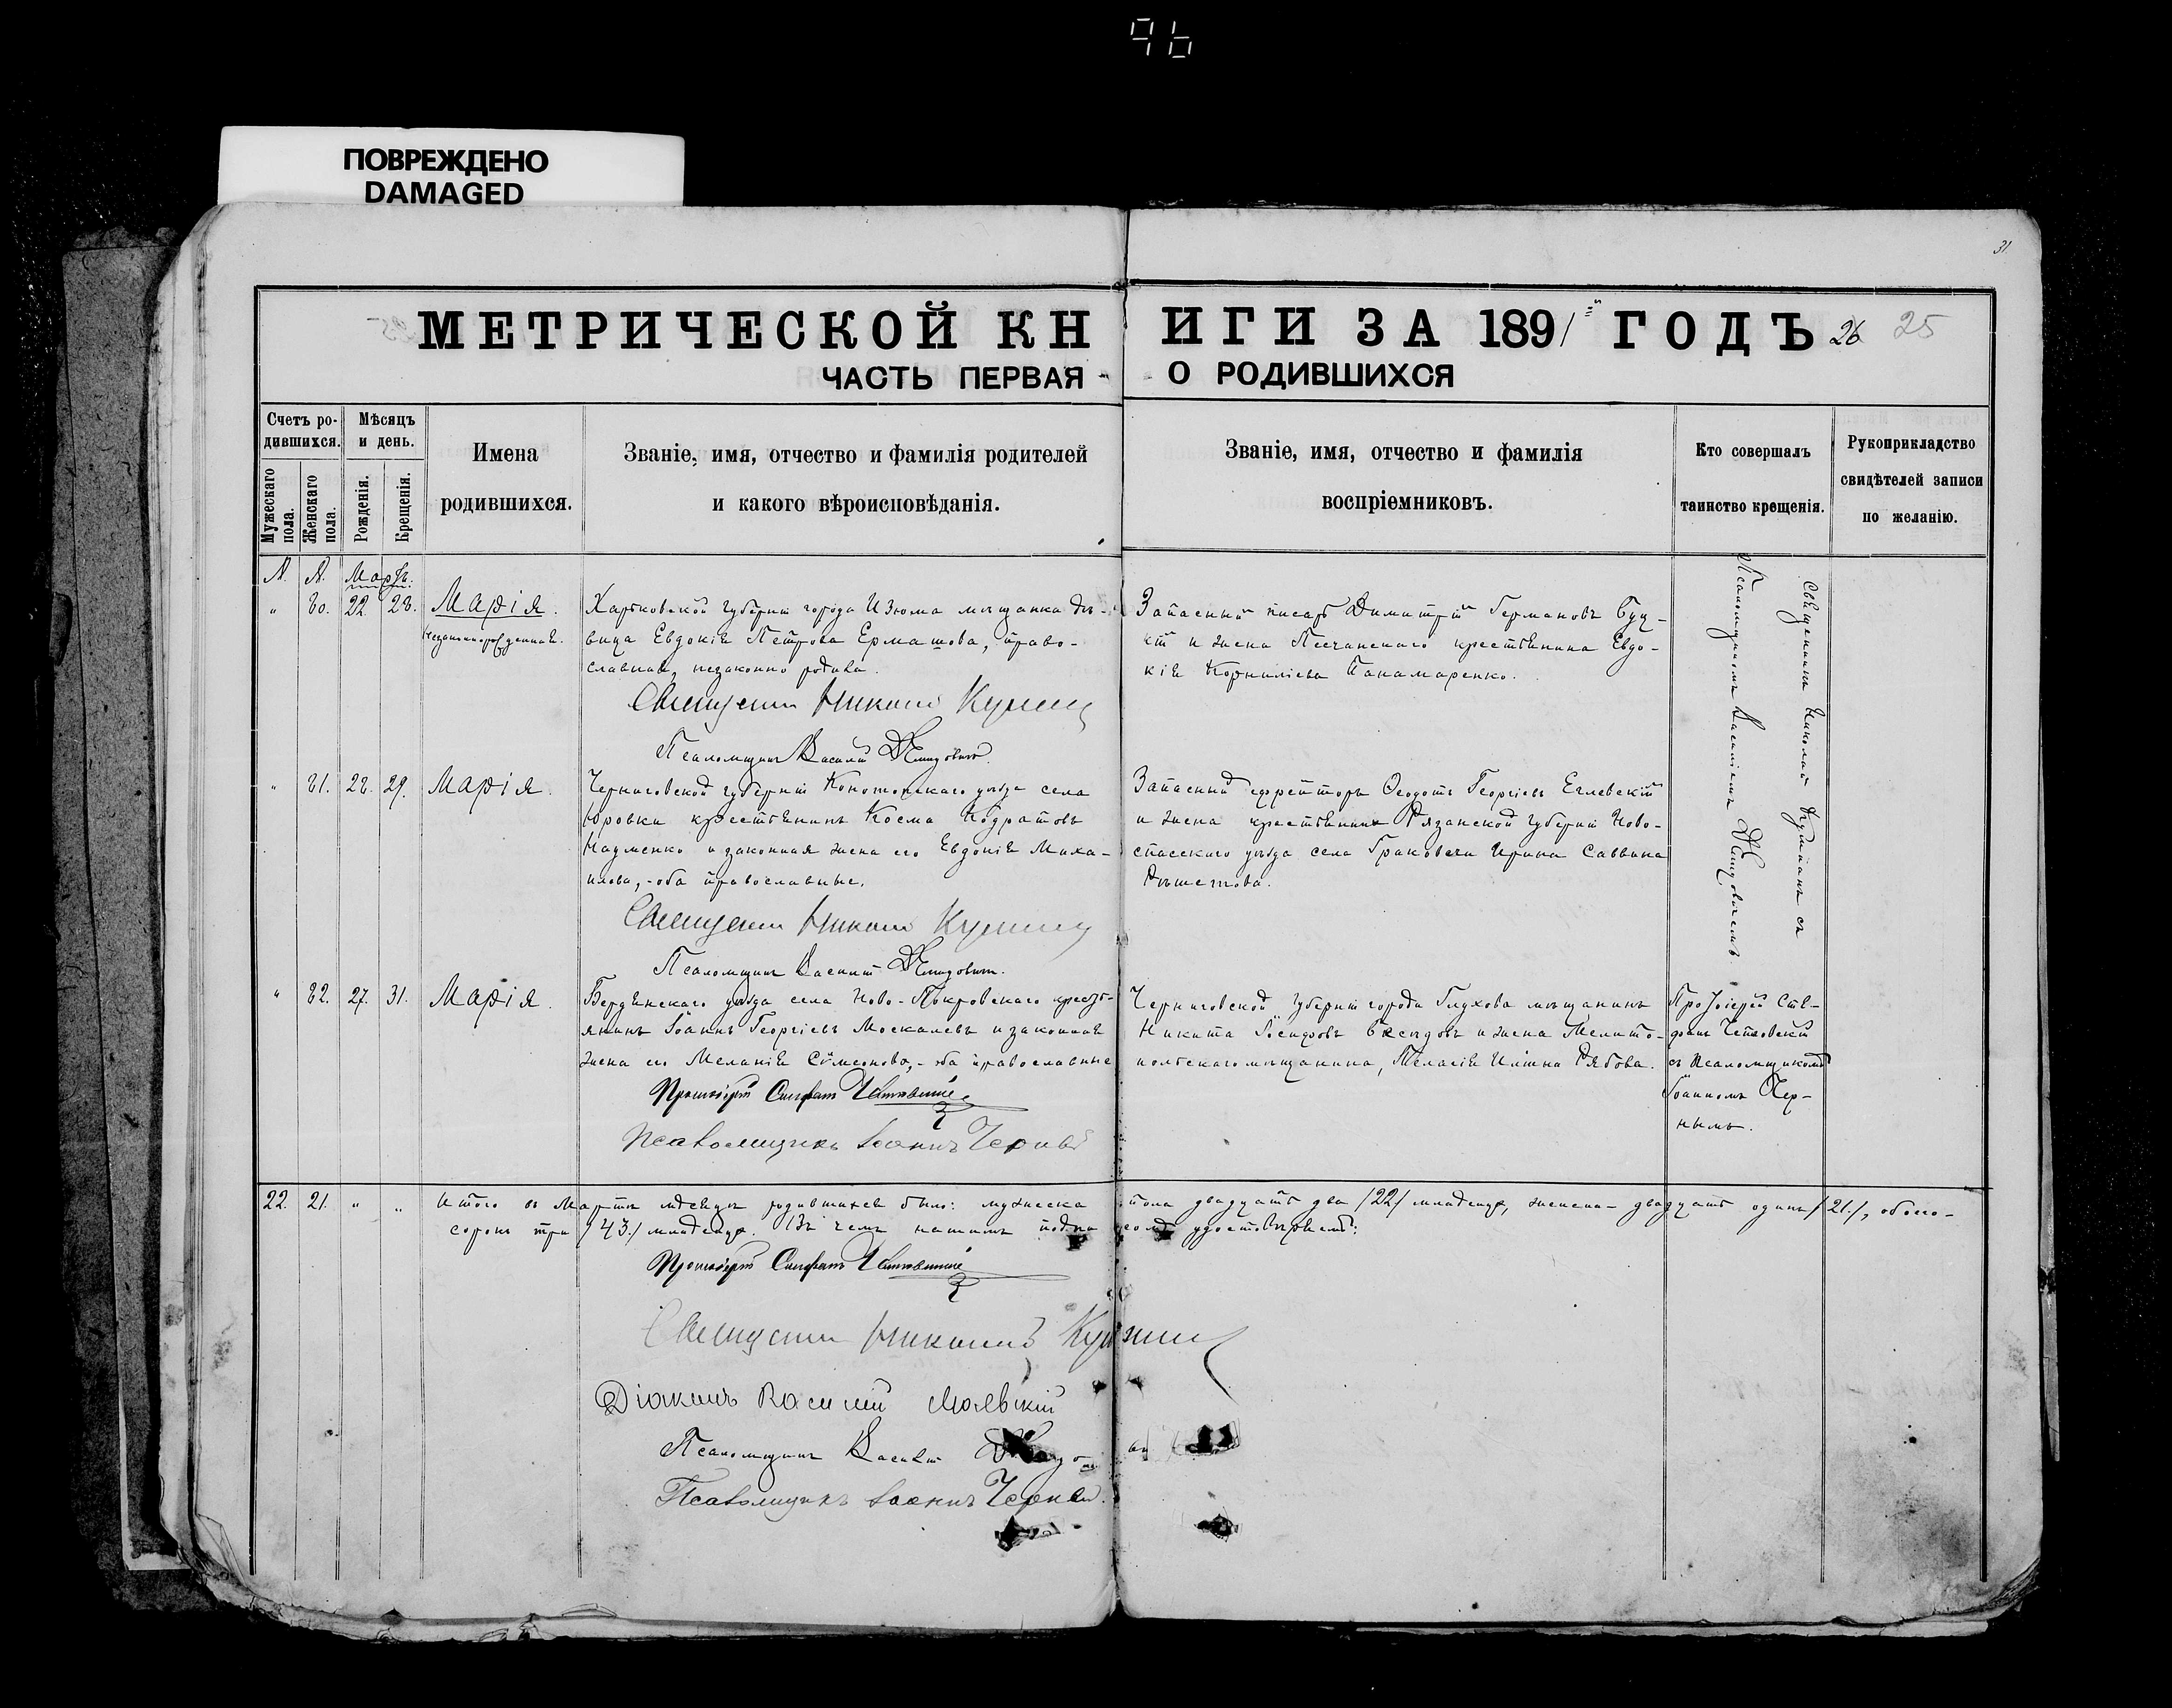 96
ПОВРЕЖДЕНО
DAMAGED
31
МЕТРИЧЕСКОЙ КНИГИ ЗА 1891 ГОДЪ 26 25
ЧАСТЬ ПЕРВАЯ - О РОДИВШИХСЯ
Счетъ ро-
дившихся.
Мужескаго пола.
Женскаго пола.
Мѣсяцъ
и день.
Рожденія.
Крещенія.
Имена
родившихся.
Званіе, имя, отчество и фамилія родителей
и какого вѣроисповѣданія.
Званіе, имя, отчество и фамилія
воспріемниковъ.
Кто совершалъ
таинство крещенія.
Рукоприкладство
свидѣтелей записи
по желанію.
№. №. Мартъ.
" 80. 22. 28. Марія.
незаконнорожденная.
Харьковской губерніи города Изюма мѣщанка дѣ-
вица Евдокія Петрова Ермашова, право-
славная, незаконно родила.
Священникъ Николай
Псаломщикъ Василій
Запасный писарь Димитрій Германовъ Буц-
кій и жена Песчанскаго крестьянина Евдо-
кія Корниліева Панамаренко.
Священникъ Николай съ
Псаломщикомъ Василіемъ
" 81. 28. 29. Марія.
Черниговской губерніи Конотопскаго уѣзда села
Юровки крестьянинъ Косма Кодратовъ
Науменко и законная жена его Евдокія Миха-
илова, - оба православные.
Священникъ Николай
Псаломщикъ Василій
Запасный ефрейторъ Ѳеодотъ Георгіевъ Еглевскій
и жена крестьянина Рязанской губерніи Ново-
спасскаго уѣзда села Ирина Саввина
Рѣшетова.
" 82. 27. 31. Марія.
Бердянскаго уѣзда села Ново-Покровскаго крест-
янинъ Іоаннъ Георгіевъ Москалевъ и законная
жена его Меланія Сѵмеонова, - оба православные
Протоіерей Стефанъ
Псаломщикъ Іоаннъ Черный
Черниговской губерніи города Глухова мѣщанинъ
Никита Іосифовъ и жена Мелито-
польскаго мѣщанина, Пелагія Ильина Рябова.
Протоіерей Сте-
фанъ
съ Псаломщикомъ
Іоанномъ Чер-
нымъ.
22. 21. " " Итого въ Мартѣ мѣсяцѣ родившихся было: мужеска пола двадцать два /22/ младенца, женска - двадцать одинъ /21/, обоего -
сорокъ три /43/ младенца. Въ чемъ нашимъ подписомъ удостовѣряемъ:
Протоіерей Стефанъ
Священникъ Николай
Діаконъ Василій
Псаломщикъ Василій
Псаломщикъ Іоаннъ Черный.